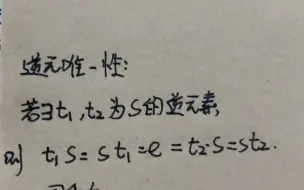 逆元唯一性:
若∃t₁,t₂为S的逆元素,
则 t₁S=St₁=e=t₂·S=St₂.